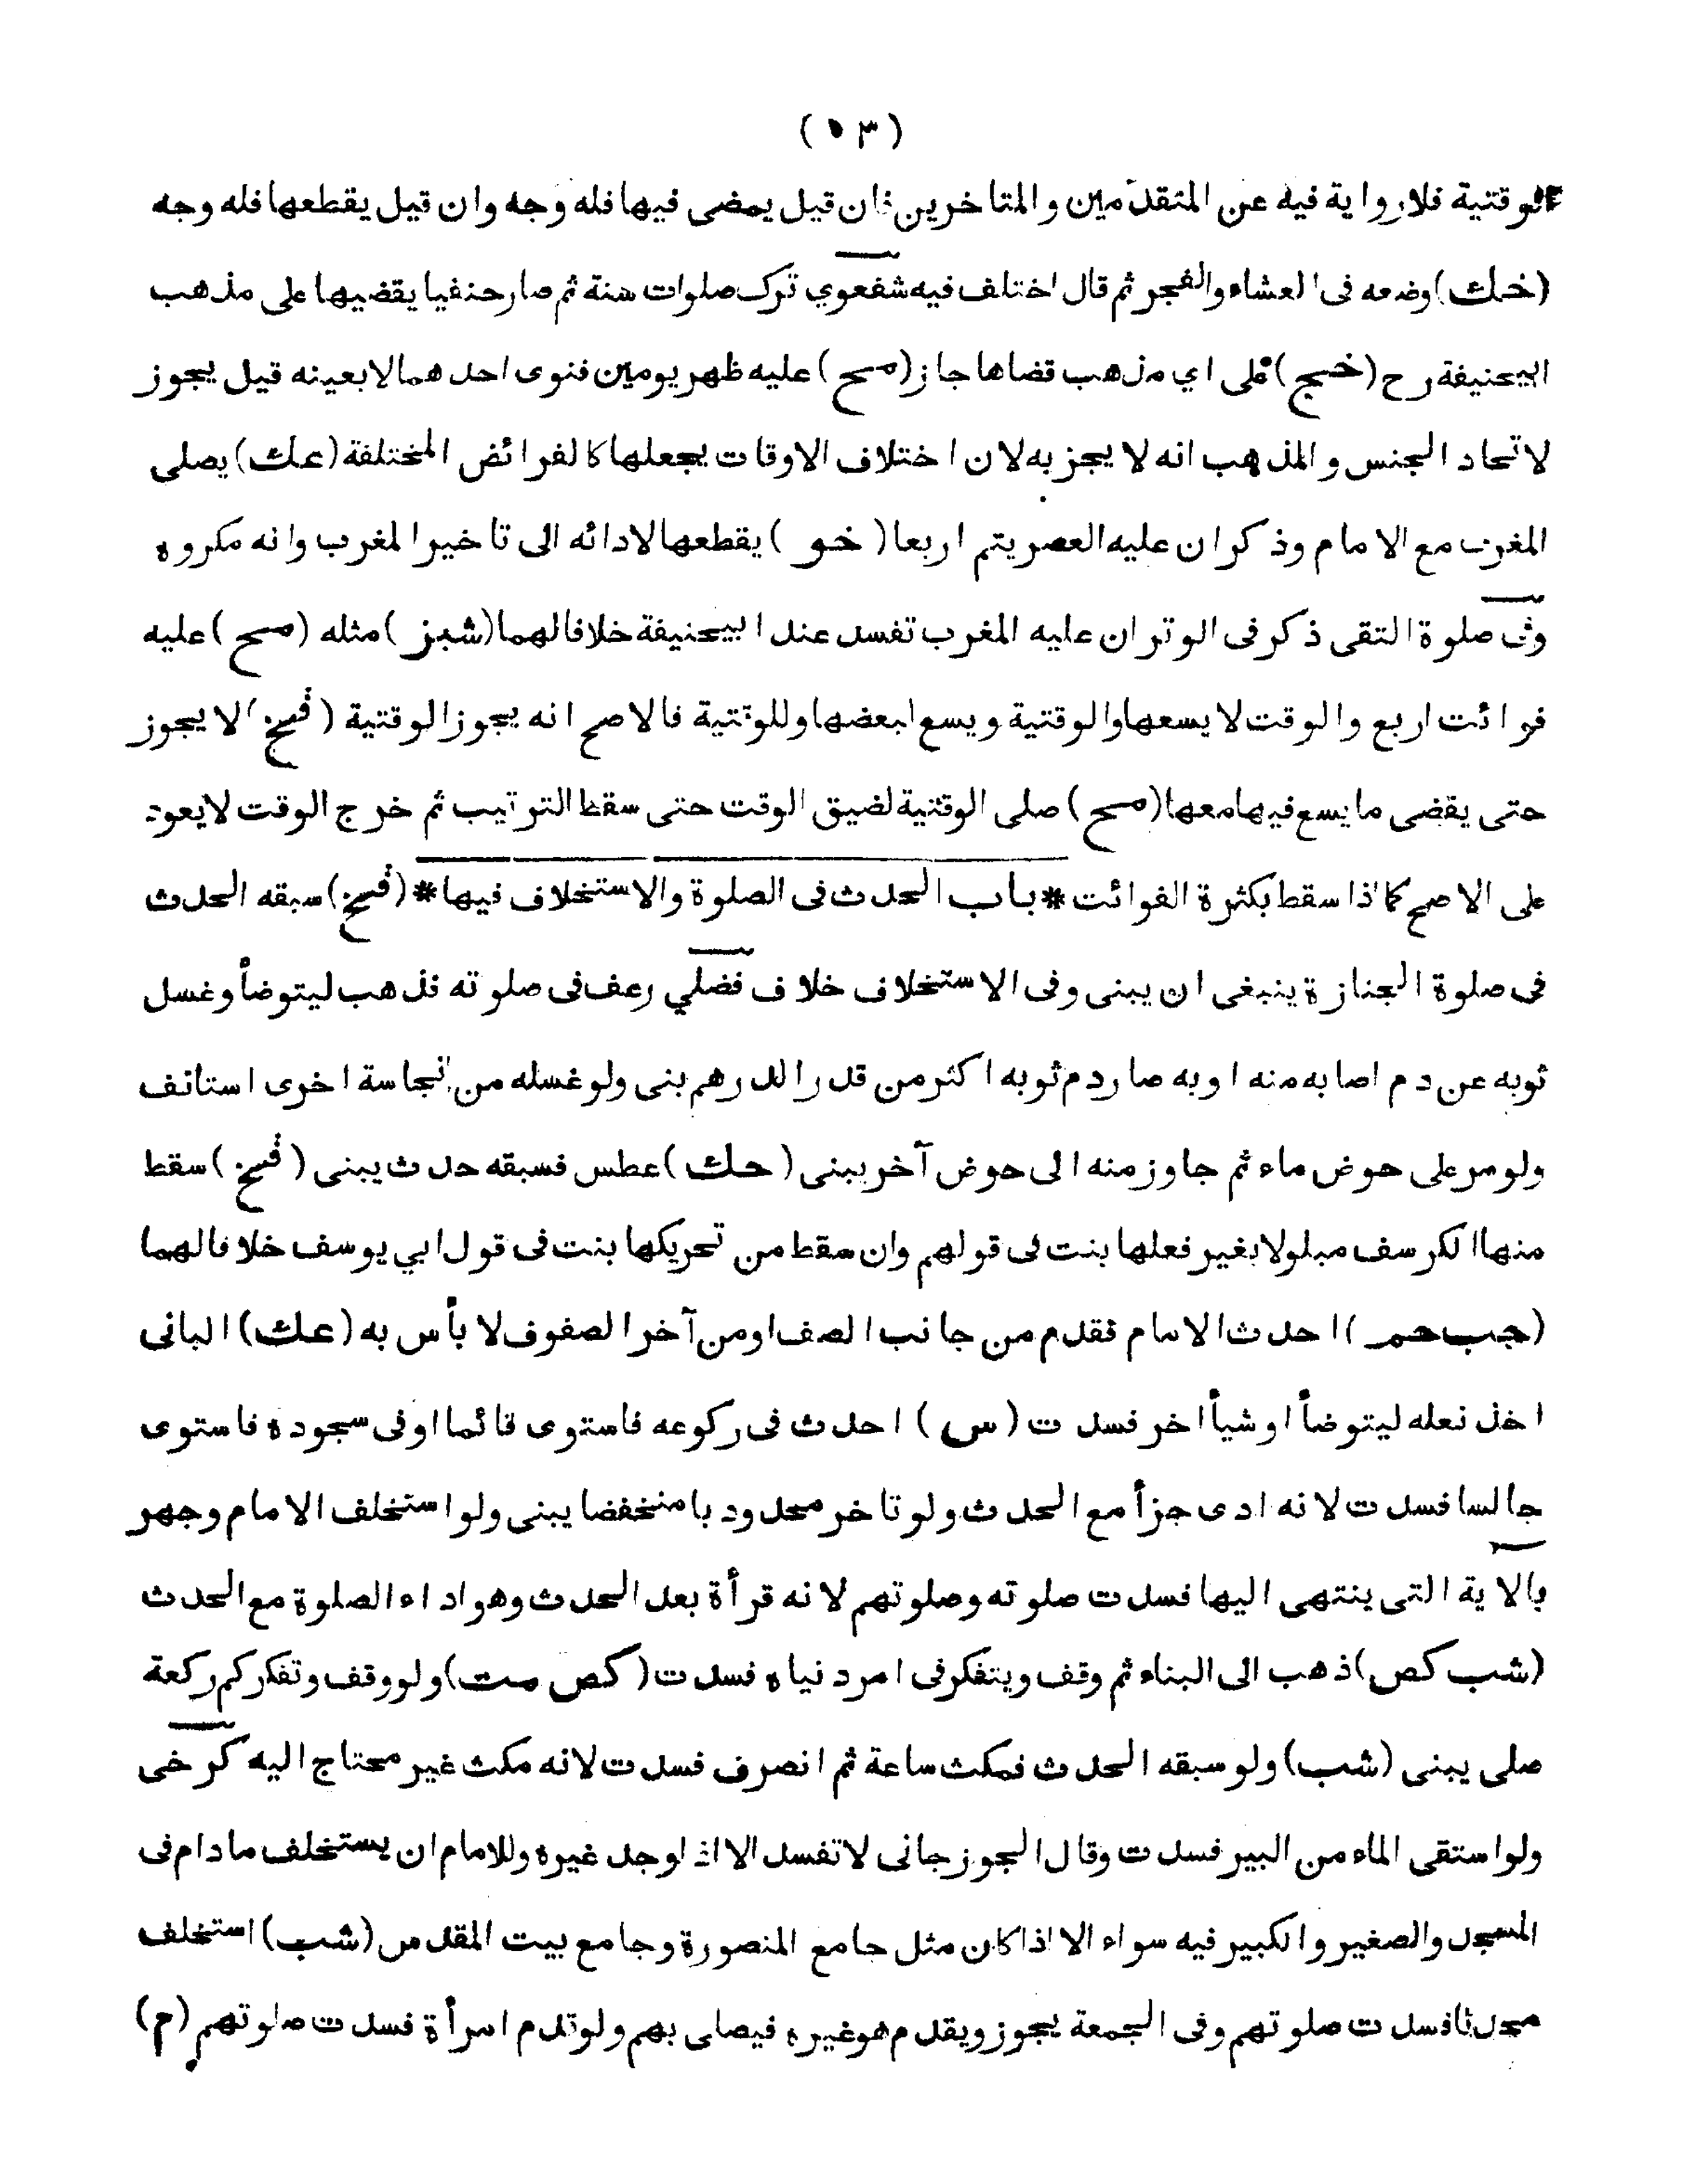 (٥٣)
الوقتية فلا رواية فيه عن المتقدّمين والمتاخرين فان قيل يمضى فيها فله وجه وان قيل يقطعها فله وجه
(خك) وضعه فى العشاء والفجر ثم قال اختلف فيه شفعوي ترك صلوات سنة ثم صار حنفيا يقضيها على مذهب
ابيحنيفة رح (خج) على اي مذهب قضاها جاز (مح) عليه ظهر يومين فنوى احدهما لا بعينه قيل يجوز
لاتحاد الجنس والمذهب انه لا يجزيه لان اختلاف الاوقات يجعلها كالفرائض المختلفة (عك) يصلى
المغرب مع الامام وذكر ان عليه العصر يتم اربعا (خو) يقطعها لادائه الى تاخير المغرب وانه مكروه
وفى صلوة التقى ذكر فى الوتر ان عليه المغرب تفسد عند ابيحنيفة خلافا لهما (شبز) مثله (مح) عليه
فوائت اربع والوقت لا يسعها والوقتية ويسع بعضها وللوقتية فالاصح انه يجوز الوقتية (فسخ) لا يجوز
حتى يقضى ما يسع فيها معها (مح) صلى الوقتية لضيق الوقت حتى سقط الترتيب ثم خرج الوقت لا يعود
على الاصح كما اذا سقط بكثرة الفوائت * باب الحدث فى الصلوة والاستخلاف فيها * (فسخ) سبقه الحدث
فى صلوة الجنازة ينبغى ان يبنى وفى الاستخلاف خلاف فضلي رعف فى صلوته فذهب ليتوضأ وغسل
ثوبه عن دم اصابه منه اوبه صار دم ثوبه اكثر من قدر الدرهم بنى ولو غسله من نجاسة اخرى استانف
ولو مر على حوض ماء ثم جاوز منه الى حوض آخر يبنى (حك) عطس فسبقه حدث يبنى (فسخ) سقط
منها الكرسف مبلولا بغير فعلها بنت فى قولهم وان سقط من تحريكها بنت فى قول ابي يوسف خلافا لهما
(جب حم) احدث الامام فقدم من جانب الصف او من آخر الصفوف لا بأس به (عك) البانى
اخذ نعله ليتوضأ اوشيأ اخر فسدت (س) احدث فى ركوعه فاستوى قائما اوفى سجوده فاستوى
جالسا فسدت لانه ادى جزأ مع الحدث ولو تاخر محدودبا منخفضا يبنى ولو استخلف الامام وجهر
بالاية التى ينتهى اليها فسدت صلوته وصلوتهم لانه قرأة بعد الحدث وهو اداء الصلوة مع الحدث
(شب كص) ذهب الى البناء ثم وقف ويتفكر فى امر دنياه فسدت (كص مت) ولو وقف وتفكر كم ركعة
صلى يبنى (شب) ولو سبقه الحدث فمكث ساعة ثم انصرف فسدت لانه مكث غير محتاج اليه كرخى
ولو استقى الماء من البير فسدت وقال الجوزجانى لا تفسد الا اذا وجد غيره وللامام ان يستخلف مادام فى
المسجد والصغير والكبير فيه سواء الا اذا كان مثل جامع المنصورة وجامع بيت المقدس (شب) استخلف
محدثا فسدت صلوتهم وفى الجمعة يجوز ويقدم هو غيره فيصلى بهم ولو تقدم امرأة فسدت صلوتهم (م)